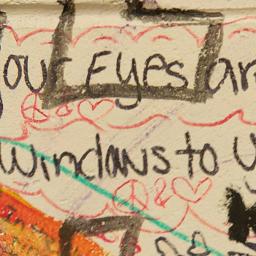 our Eyes ar
Windows to